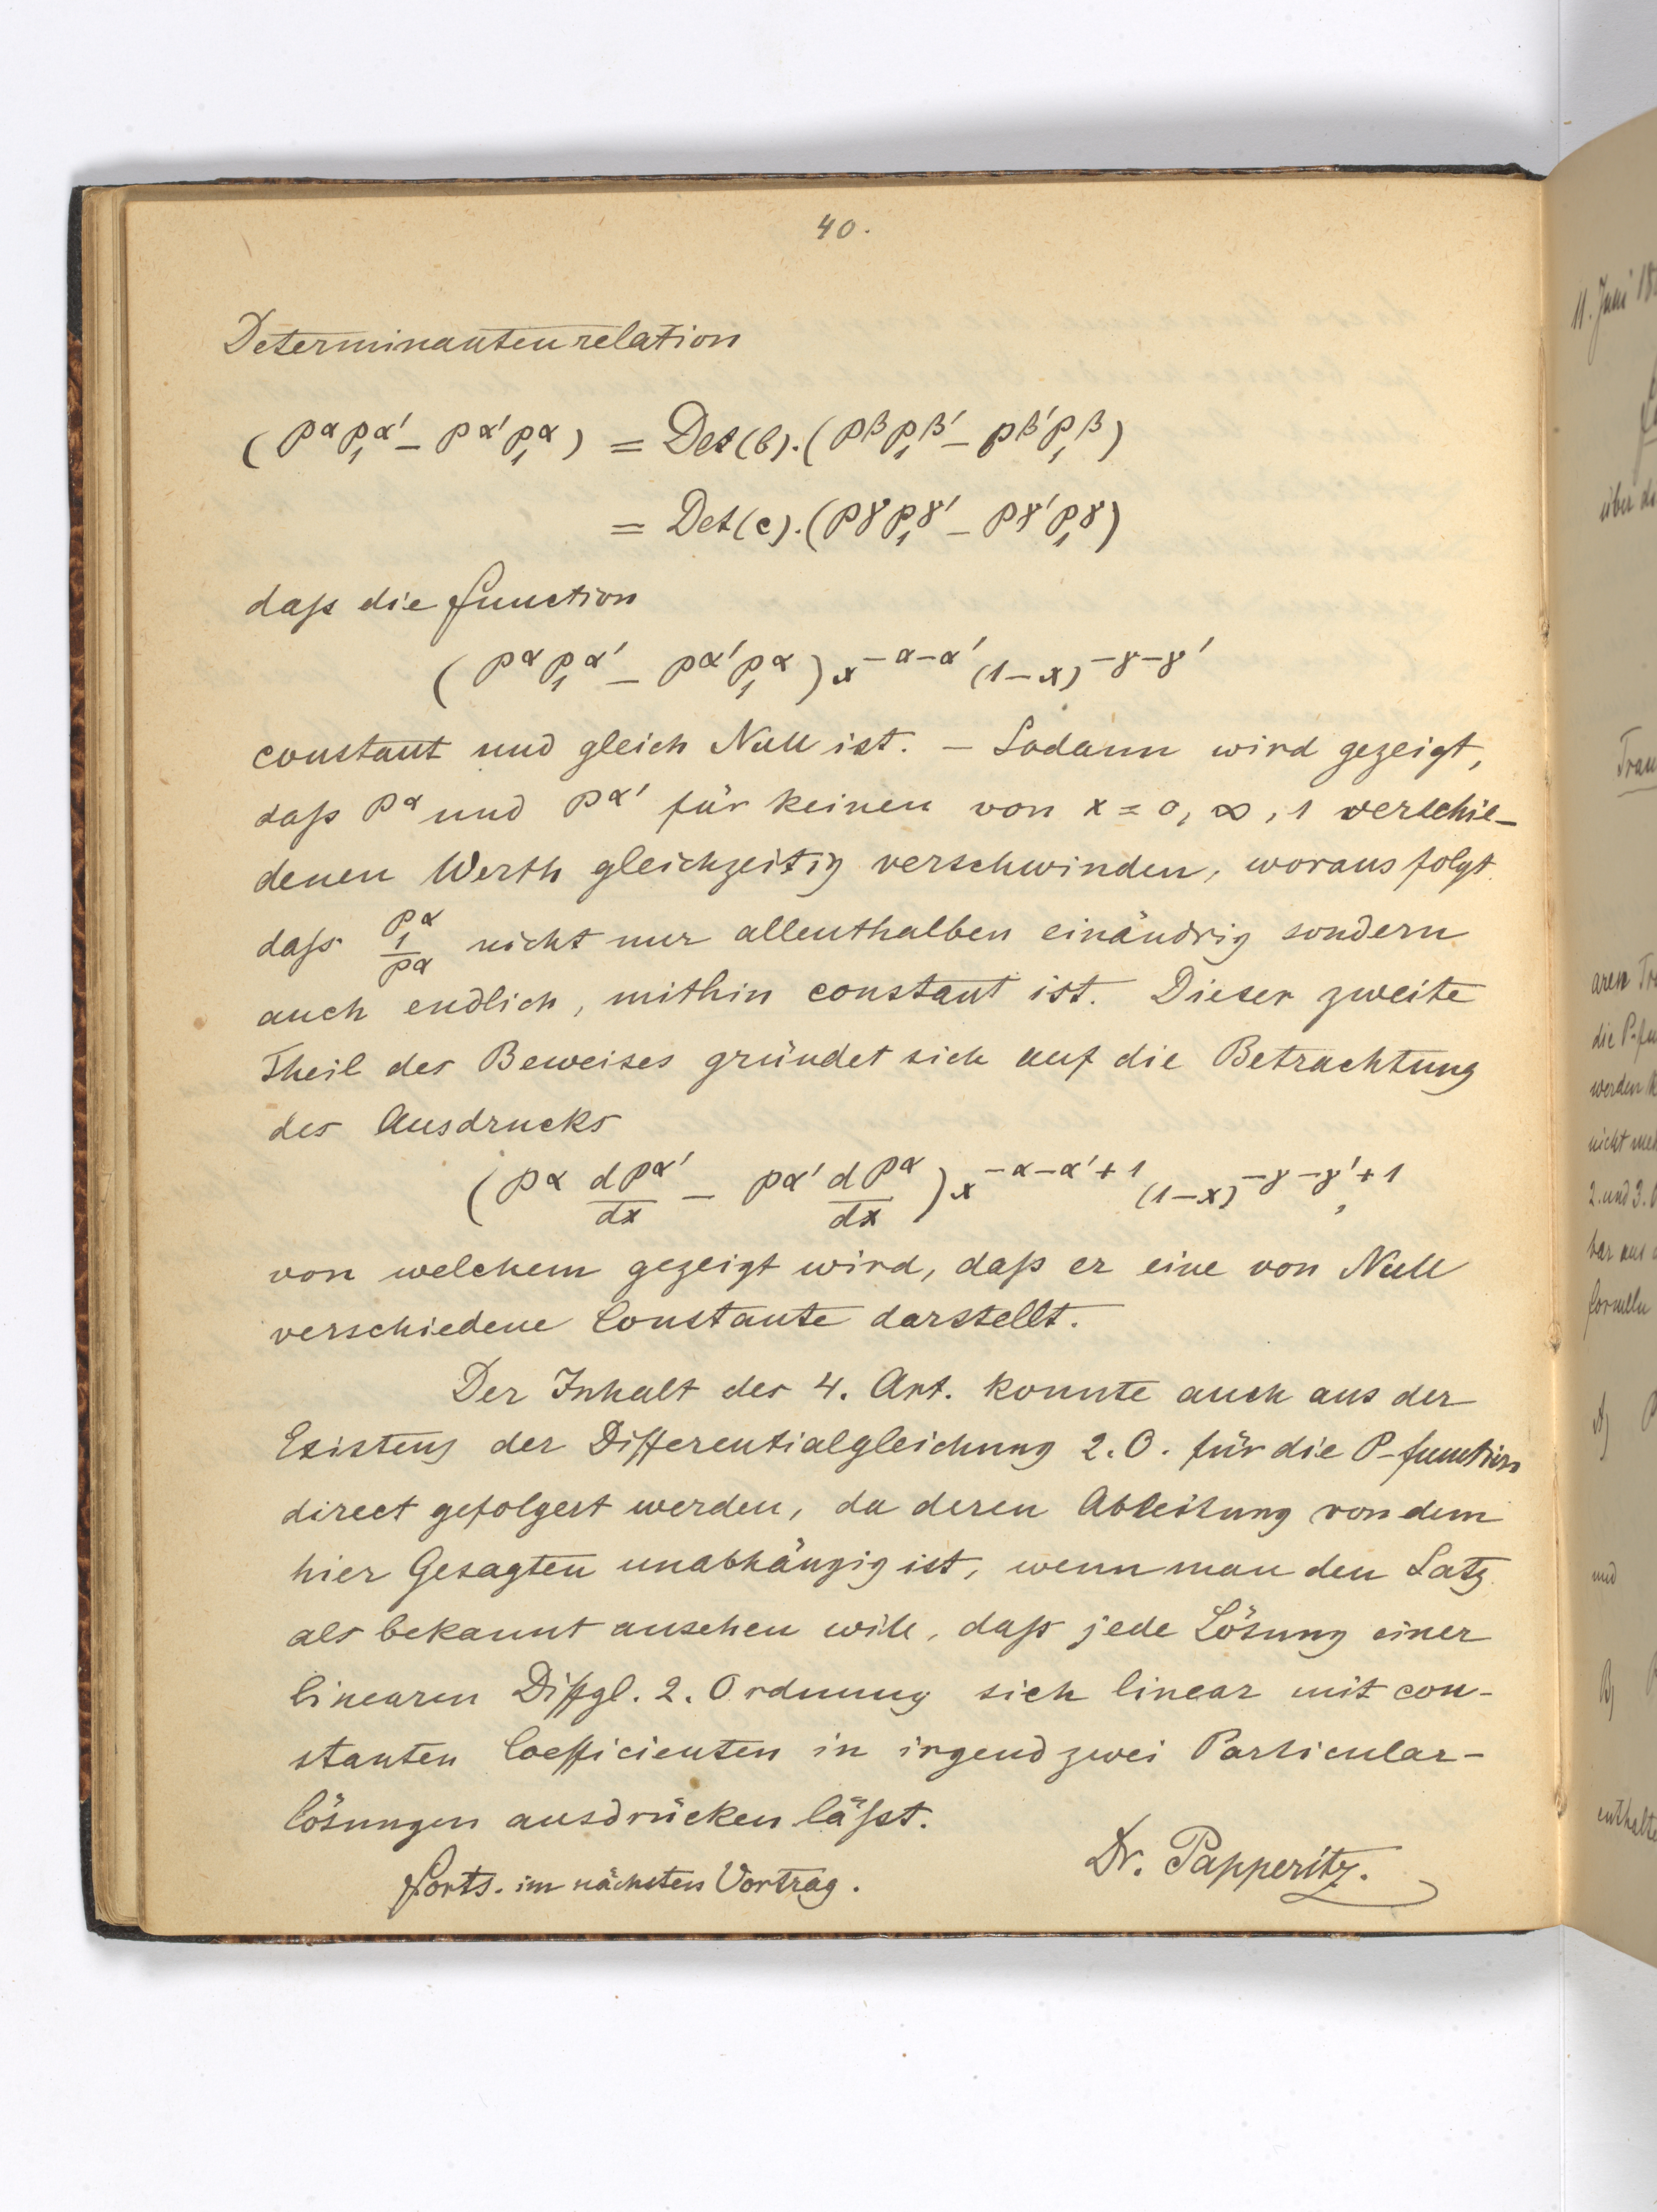 40.
Determinantenrelation
(P^α P₁^α' – P^α' P₁^α) = Det(b).(P^β P₁^β' – P^β' P₁^β)
= Det(c).(P^γ P₁^γ' – P^γ' P₁^γ)
daß die Function
(P^α P₁^α' – P^α' P₁^α) x^–α–α' (1–x)^–γ–γ'
constant und gleich Null ist. – Sodann wird gezeigt,
daß P^α und P^α' für keinen von x = 0, ∞, 1 verschie-
denen Werth gleichzeitig verschwinden, woraus folgt
daß P₁^α/P^α nicht nur allenthalben einändrig sondern
auch endlich, mithin constant ist. Dieser zweite
Theil des Beweises gründet sich auf die Betrachtung
des Ausdrucks
(P^α dP^α'/dx – P^α' dP^α/dx) x^–α–α'+1 (1–x)^–γ–γ'+1,
von welchem gezeigt wird, daß er eine von Null
verschiedene Constante darstellt.
Der Inhalt des 4. Art. konnte auch aus der
Existenz der Differentialgleichung 2. O. für die P-function
direct gefolgert werden, da deren Ableitung von dem
hier Gesagten unabhängig ist, wenn man den Satz
als bekannt ansehen will, daß jede Lösung einer
linearen Diffgl. 2. Ordnung sich linear mit con-
stanten Coefficienten in irgend zwei Particular-
lösungen ausdrücken läßt.
Dr. Papperitz.
Forts. im nächsten Vortrag.
11. Juni 18
über di
Tran
aren Tr
die P-fu
werden k
nicht meh
2. und 3.
bar aus
formeln
A) P
und
B)
enthalte